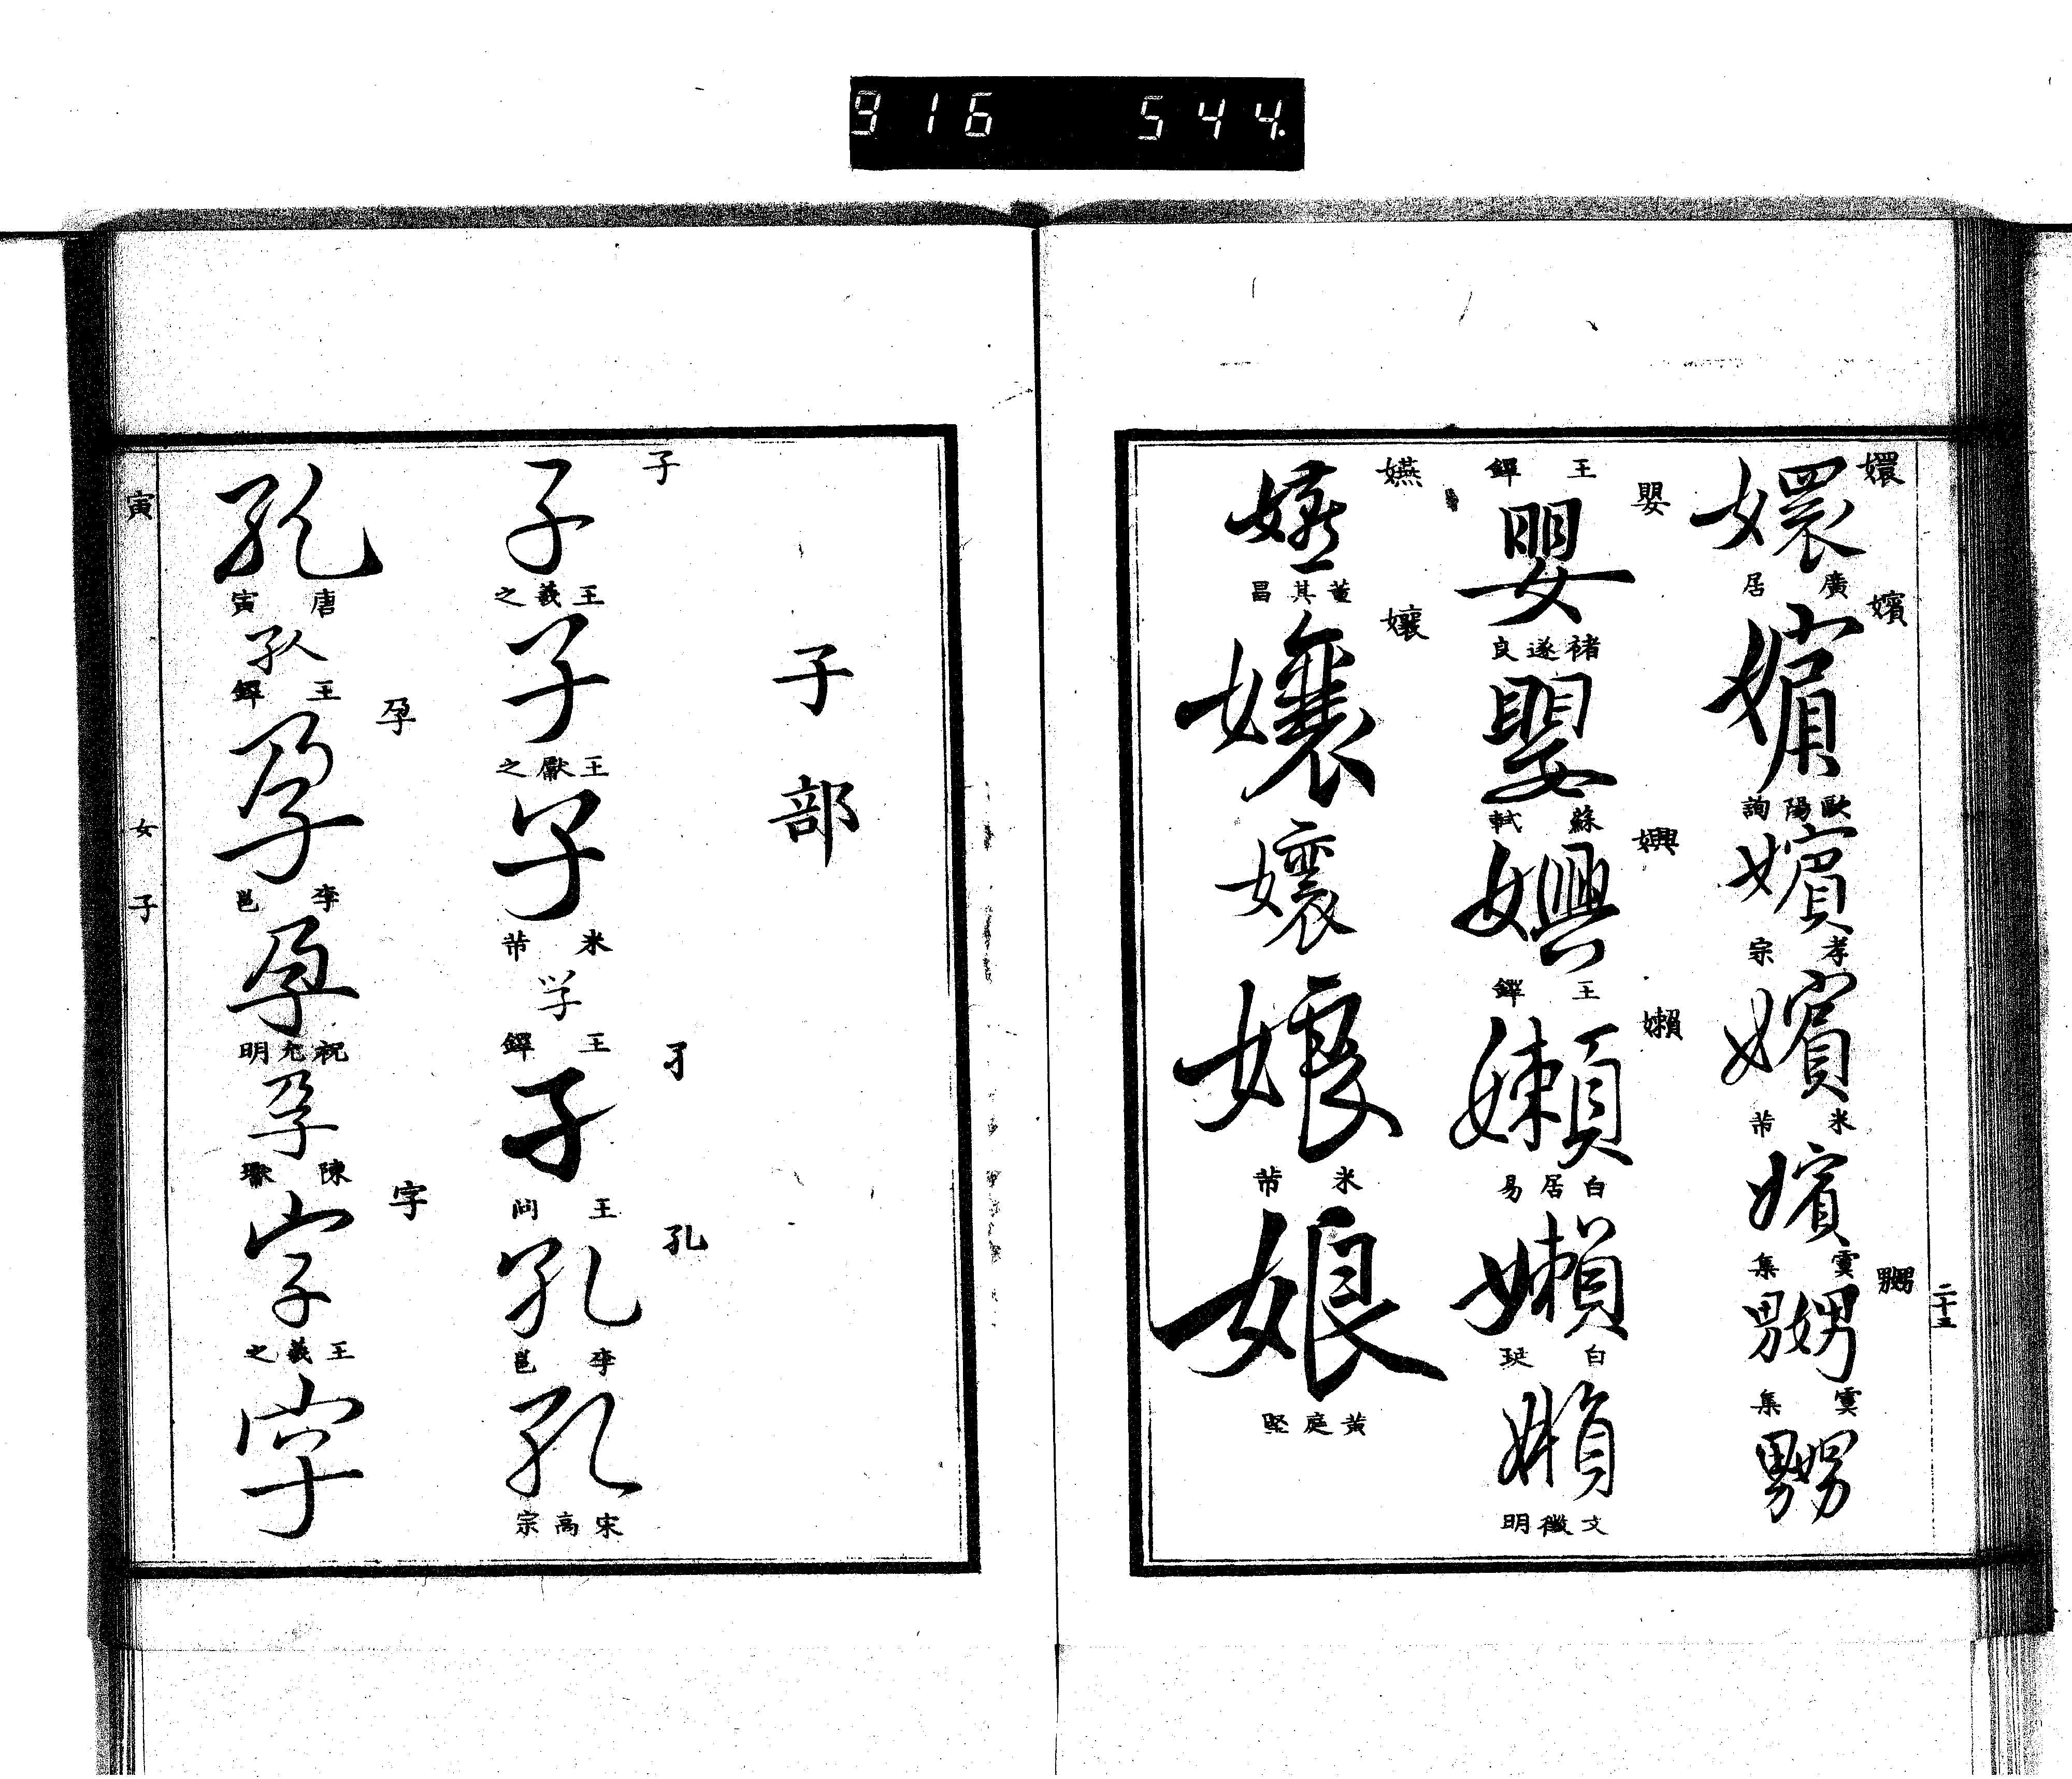 916 544.
嬛 嬛 廣居
嬪 嬪 歐陽詢 嬪 孝宗 嬪 米芾 嬪 虞集
嬲 嬲 虞集 嬲
二十三
王鐸
嬰 嬰 褚遂良 嬰 蘇軾
嬹 嬹 王鐸
嬾 嬾 白居易 嬾 白珽 嬾 文徵明
嬿 嬿 董其昌
孃 孃 孃 娘 米芾 娘 黃庭堅
子部
子 子 王羲之 子 王獻之 子 米芾 子 王鐸
孑 孑 王問
孔 孔 李邕 孔 宋高宗
孔 唐寅 孔 王鐸
孕 孕 李邕 孕 祝允明 孕 陳獻
字 字 王羲之 字
寅 女 子